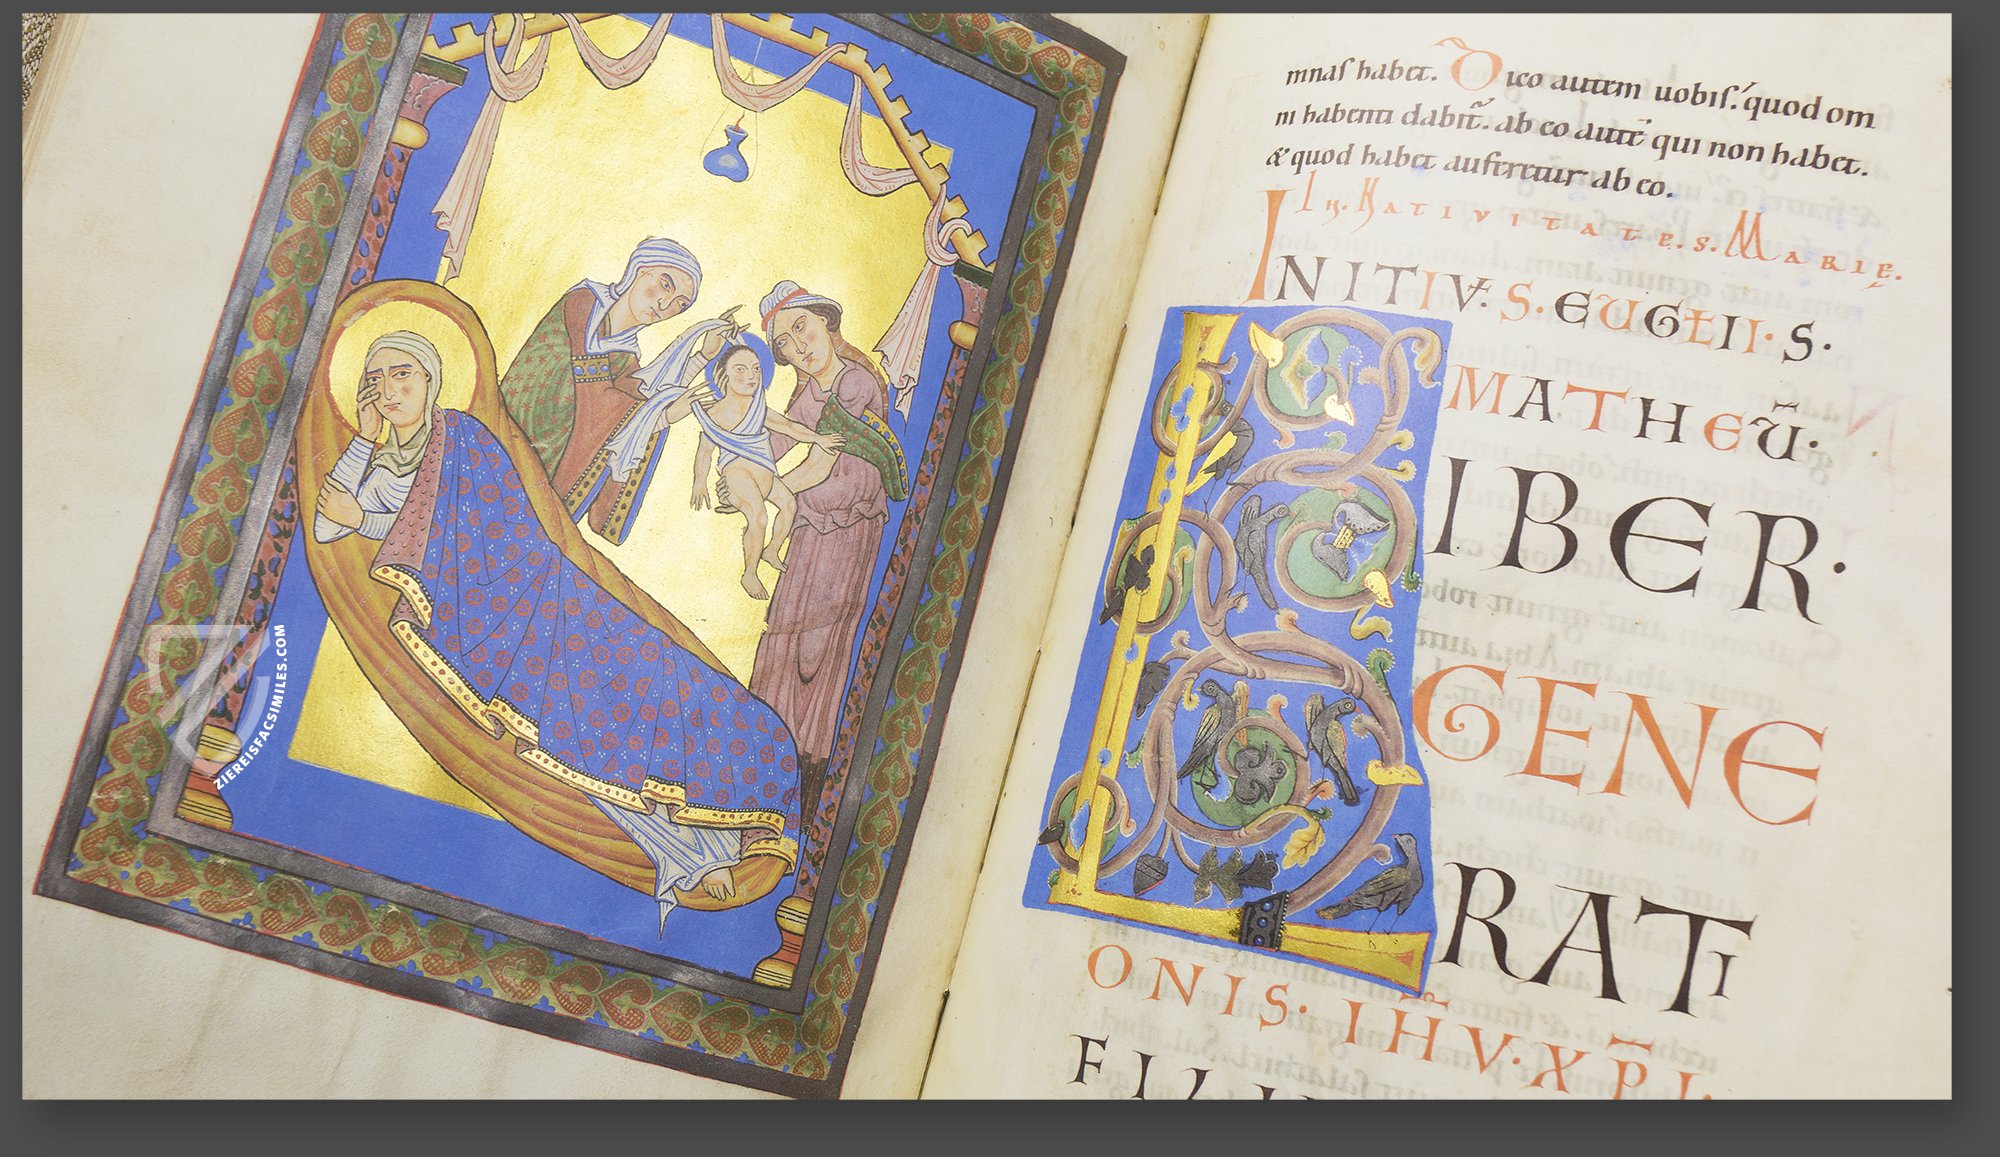 ZIEREISFACSIMILES.COM
mnas habet. Dico autem uobis. quod om
ni habenti dabit̃. ab eo autē qui non habet.
& quod habet auferetur ab eo.
IN. NATIVITATE. S. MARIE.
INITIV. S. EUGLII. S.
MATHEŪ.
LIBER.
GENE
RATI
ONIS. IHV. XPI.